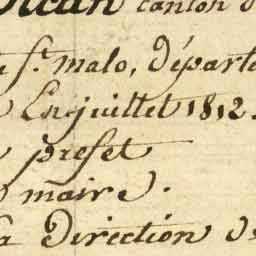 canton d
St. malo, départe
En juillet 1812.
prefet
maire.
la Direction de